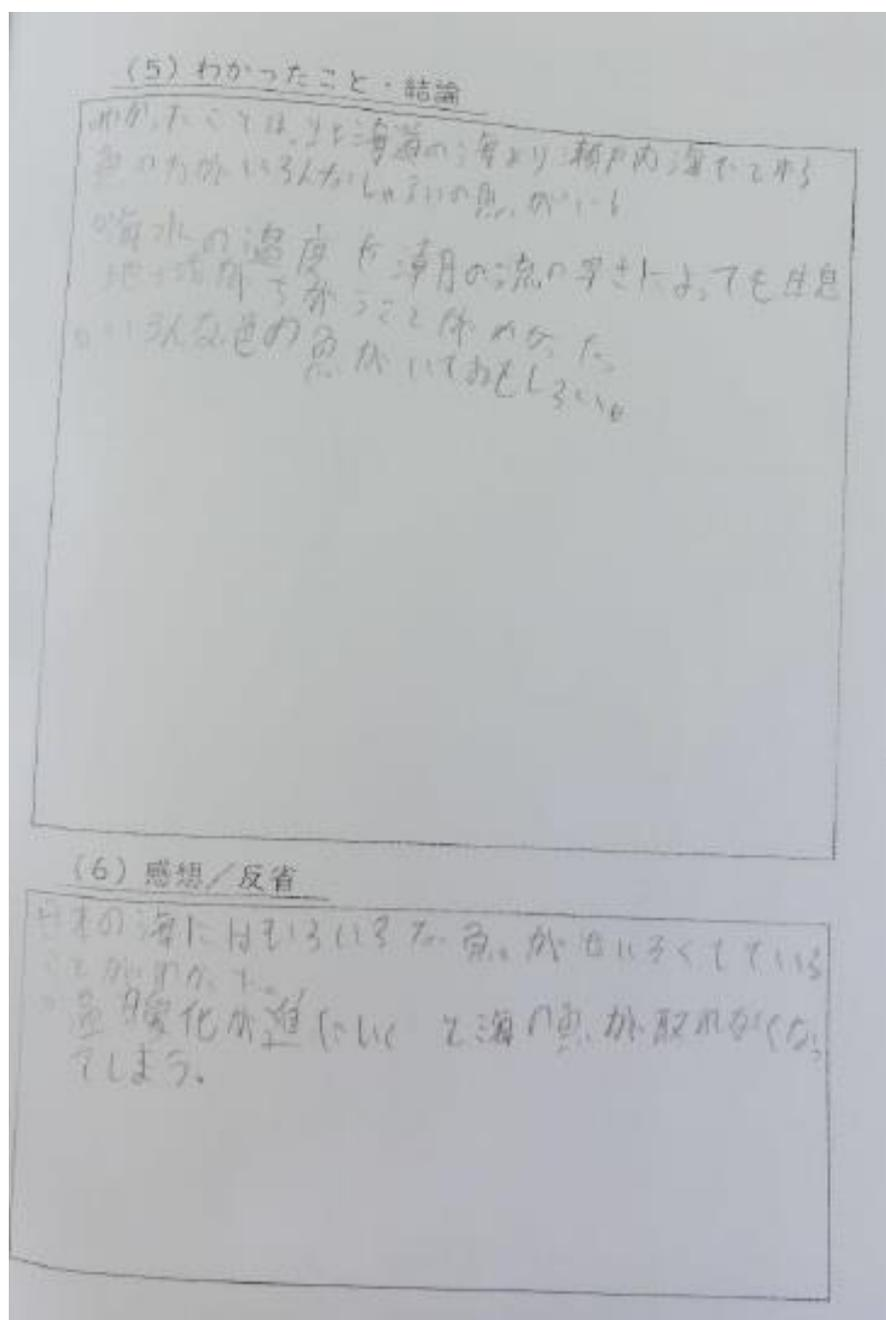 (5) わかったこと・結論
わかったことは、北海道の海より瀬戸内海でとれる
魚の方がいろんなしゅるいの魚がいる
海水の温度や潮の流の早さによっても生息
地域がちがうことがわかった
いろんな色の魚がいておもしろい。
(6) 感想／反省
日本の海にはいろいろな魚がせいそくしている
ことがわかった。
温暖化が進んでいくと海の魚が取れなくなっ
てしまう。